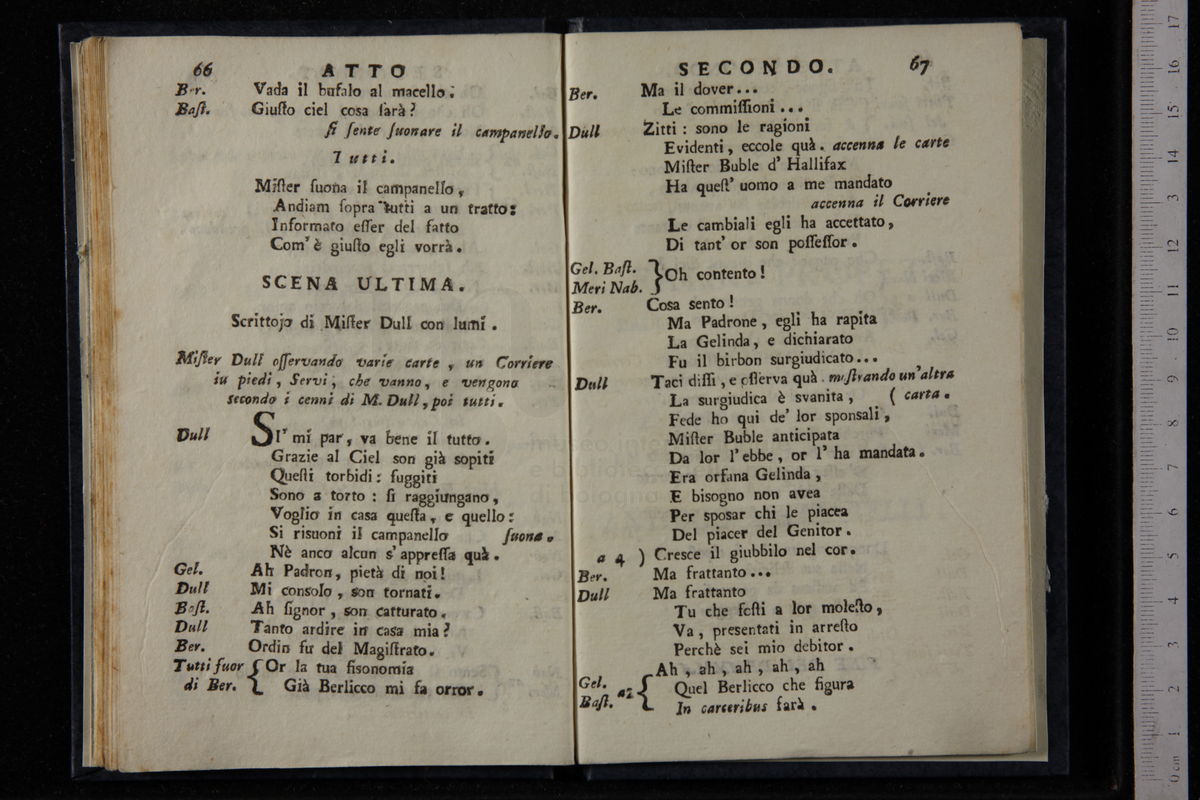 66 ATTO
Ber. Vada il bufalo al macello.
Baſt. Giuſto ciel cosa ſarà?
ſi ſente ſuonare il campanello.
Tutti.
Miſter ſuona il campanello,
Andiam ſopra tutti a un tratto:
Informato eſſer del fatto
Com' è giuſto egli vorrà.
SCENA ULTIMA.
Scrittojo di Miſter Dull con lumi.
Miſter Dull oſſervando varie carte, un Corriere
iu piedi, Servi, che vanno, e vengono
secondo i cenni di M. Dull, poi tutti.
Dull SI' mi par, va bene il tutto.
Grazie al Ciel son già sopiti
Queſti torbidi: fuggiti
Sono a torto: ſi raggiungano,
Voglio in casa queſta, e quello:
Si risuoni il campanello ſuona.
Nè anco alcun s'appreſſa quà.
Gel. Ah Padron, pietà di noi!
Dull Mi consolo, son tornati.
Baſt. Ah ſignor, son catturato.
Dull Tanto ardire in casa mia?
Ber. Ordin fu del Magiſtrato.
Tutti fuor { Or la tua fisonomia
di Ber. { Già Berlicco mi fa orror.
SECONDO. 67
Ber. Ma il dover...
Le commiſſioni...
Dull Zitti: sono le ragioni
Evidenti, eccole quà. accenna le carte
Miſter Buble d' Hallifax
Ha queſt' uomo a me mandato
accenna il Corriere
Le cambiali egli ha accettato,
Di tant' or son poſſeſſor.
Gel. Baſt. } Oh contento!
Meri Nab. }
Ber. Cosa sento!
Ma Padrone, egli ha rapita
La Gelinda, e dichiarato
Fu il birbon surgiudicato...
Dull Taci diſſi, e oſſerva quà. moſtrando un'altra
La surgiudica è svanita, ( carta.
Fede ho qui de' lor sponsali,
Miſter Buble anticipata
Da lor l'ebbe, or l' ha mandata.
Era orfana Gelinda,
E bisogno non avea
Per sposar chi le piacea
Del piacer del Genitor.
a 4 ) Cresce il giubbilo nel cor.
Ber. Ma frattanto...
Dull Ma frattanto
Tu che feſti a lor moleſto,
Va, presentati in arreſto
Perchè sei mio debitor.
Ah, ah, ah, ah, ah
Gel. Baſt. a2 { Quel Berlicco che figura
In carceribus farà.